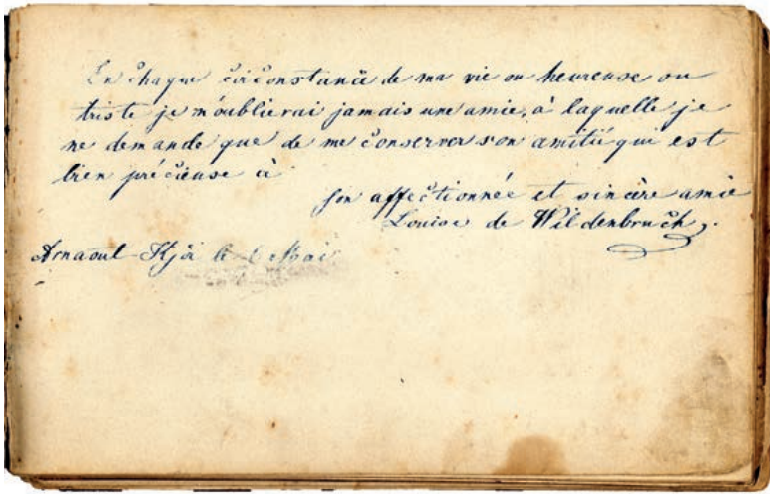 En chaque circonstance de ma vie ou heureuse ou
triste je n'oublierai jamais une amie, à laquelle je
ne demande que de me conserver son amitié qui est
bien précieuse à
son affectionnée et sincère amie
Louise de Wildenbruch.
Arnaout-Kjöi le 6 Mai